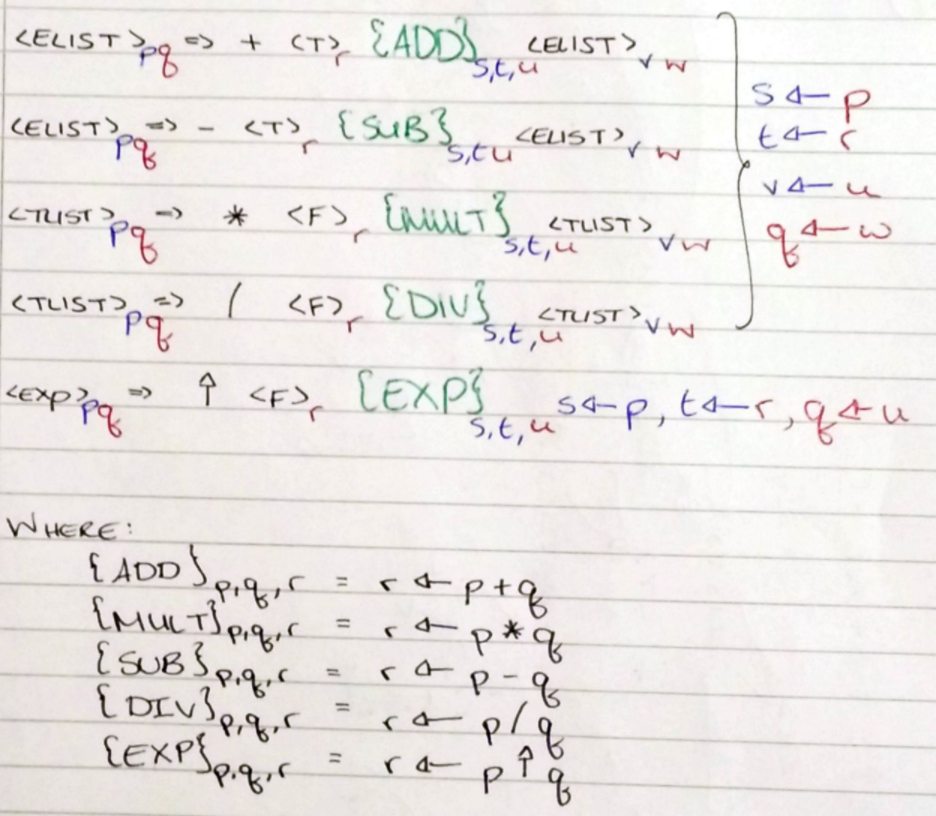 <ELIST>pq => + <T>r {ADD}s,t,u <ELIST>v w
<ELIST>pq => - <T>r {SUB}s,t,u <ELIST>v w
<TLIST>pq => * <F>r {MULT}s,t,u <TLIST>v w
<TLIST>pq => / <F>r {DIV}s,t,u <TLIST>v w
s ← p
t ← r
v ← u
q ← w
<EXP>pq => ↑ <F>r {EXP}s,t,u s←p, t←r, q←u
WHERE:
{ADD}p,q,r = r ← p+q
{MULT}p,q,r = r ← p*q
{SUB}p,q,r = r ← p-q
{DIV}p,q,r = r ← p/q
{EXP}p,q,r = r ← p↑q